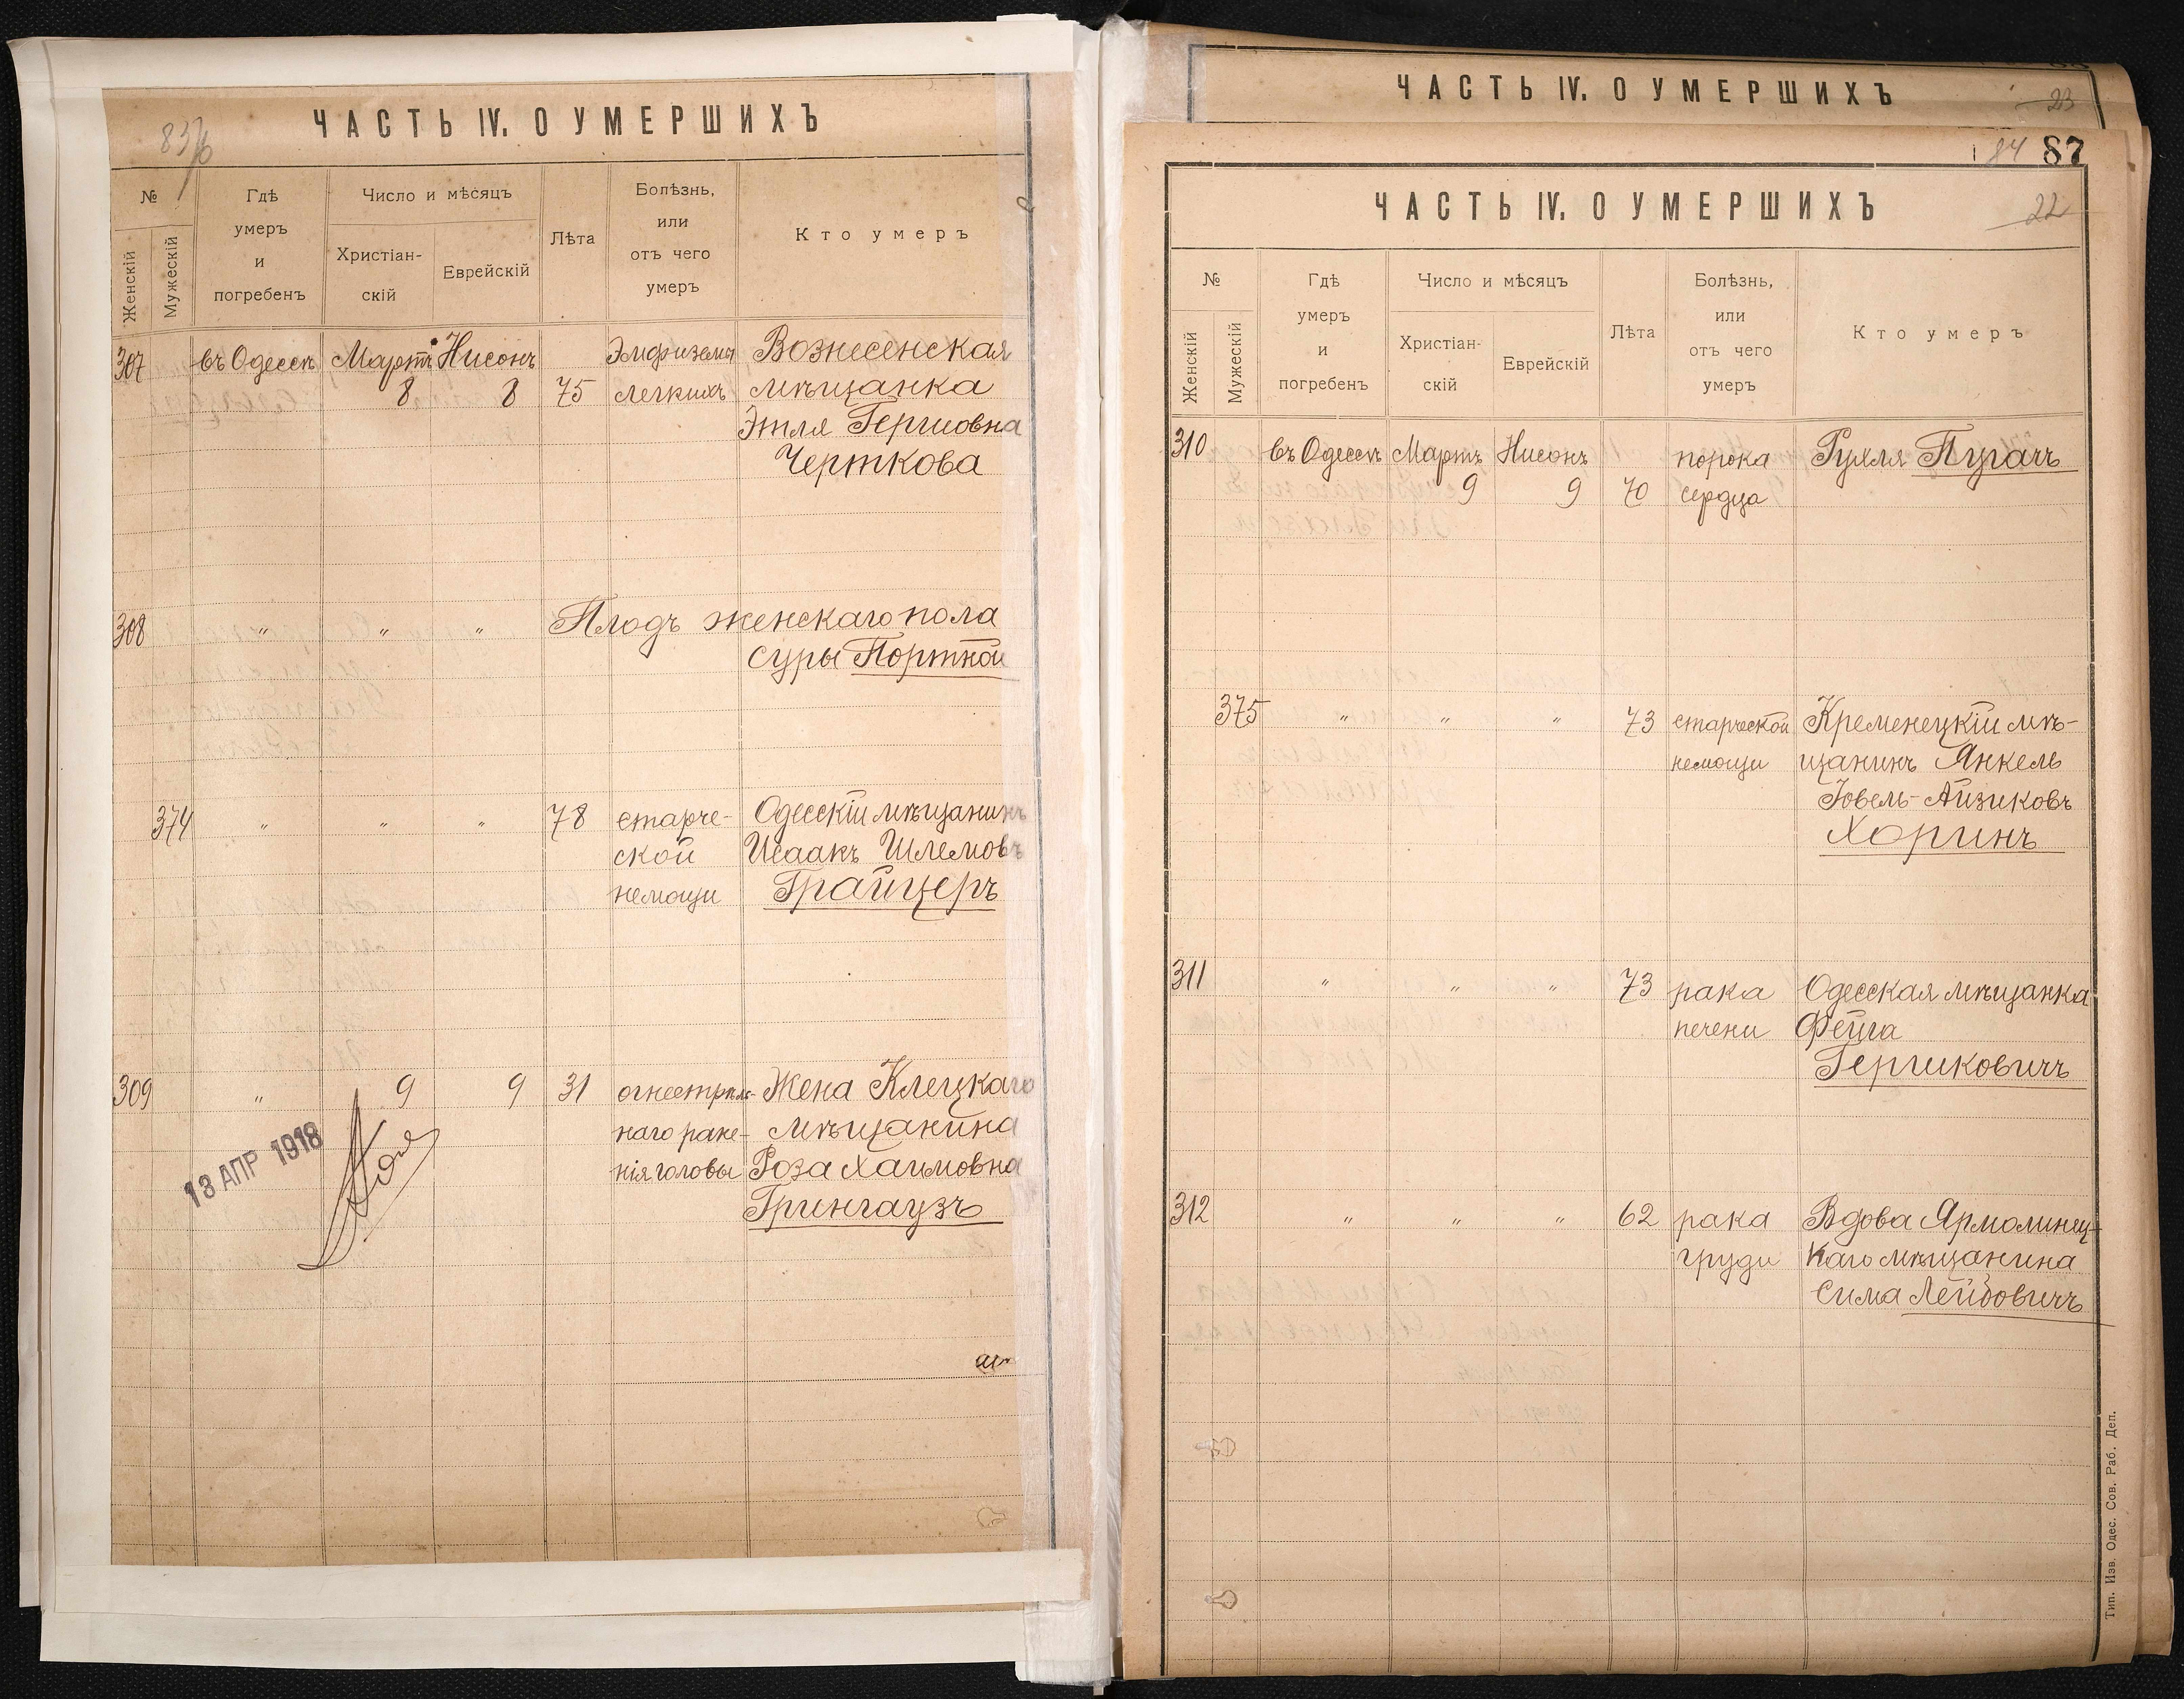 ЧАСТЬ IV. О УМЕРШИХЪ
№
Женскій
Мужескій
Гдѣ
умеръ
и
погребенъ
Число и мѣсяцъ
Христіан-
скій
Еврейскій
Лѣта
Болѣзнь,
или
отъ чего
умеръ
Кто умеръ
307 въ Одессѣ Мартъ Нисонъ Эмфиземы Вознесенская
8 8 75 легкихъ мѣщанка
Этля Гершовна
Черткова
308 " " " Плодъ женскаго пола
Суры Портной
374 " " " 78 старче- Одесскій мѣщанинъ
ской Исаакъ Шлемовъ
немощи Грайцеръ
309 " 9 9 31 огнестрѣль- Жена Клецкаго
наго ране- мѣщанина
нія головы Роза Хаимовна
Грингаузъ
13 АПР 1918
ЧАСТЬ IV. О УМЕРШИХЪ
23
84 87
ЧАСТЬ IV. О УМЕРШИХЪ
22
№
Женскій
Мужескій
Гдѣ
умеръ
и
погребенъ
Число и мѣсяцъ
Христіан-
скій
Еврейскій
Лѣта
Болѣзнь,
или
отъ чего
умеръ
Кто умеръ
310 въ Одессѣ Мартъ Нисонъ порока Рухля Пугачъ
9 9 70 сердца
375 " " " 73 старческой Кременецкій мѣ-
немощи щанинъ Янкель
Іовель-Айзиковъ
Хоринъ
311 " " " 73 рака Одесская мѣщанка
печени Фейга
Гершковичъ
312 " " " 62 рака Вдова Ярмолинец-
груди каго мѣщанина
Сима Лейбовичъ
Тип. Изв. Одес. Сов. Раб. Деп.